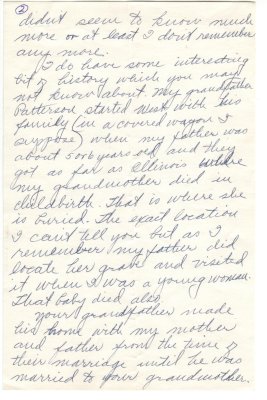 ②
didn't seem to know much
more or at least I don't remember
any more.
I do have some interesting
bit of history which you may
not know about. My grandfather
Patterson started West with his
family (in a covered wagon I
suppose) when my father was
about 5 or 6 years old and they
got as far as Illinois where
my grandmother died in
childbirth. That is where she
is buried. The exact location
I can't tell you but as I
remember my father did
locate her grave and visited
it when I was a young woman.
That baby died also.
Your grandfather made
his home with my mother
and father from the time of
their marriage until he was
married to your grandmother.